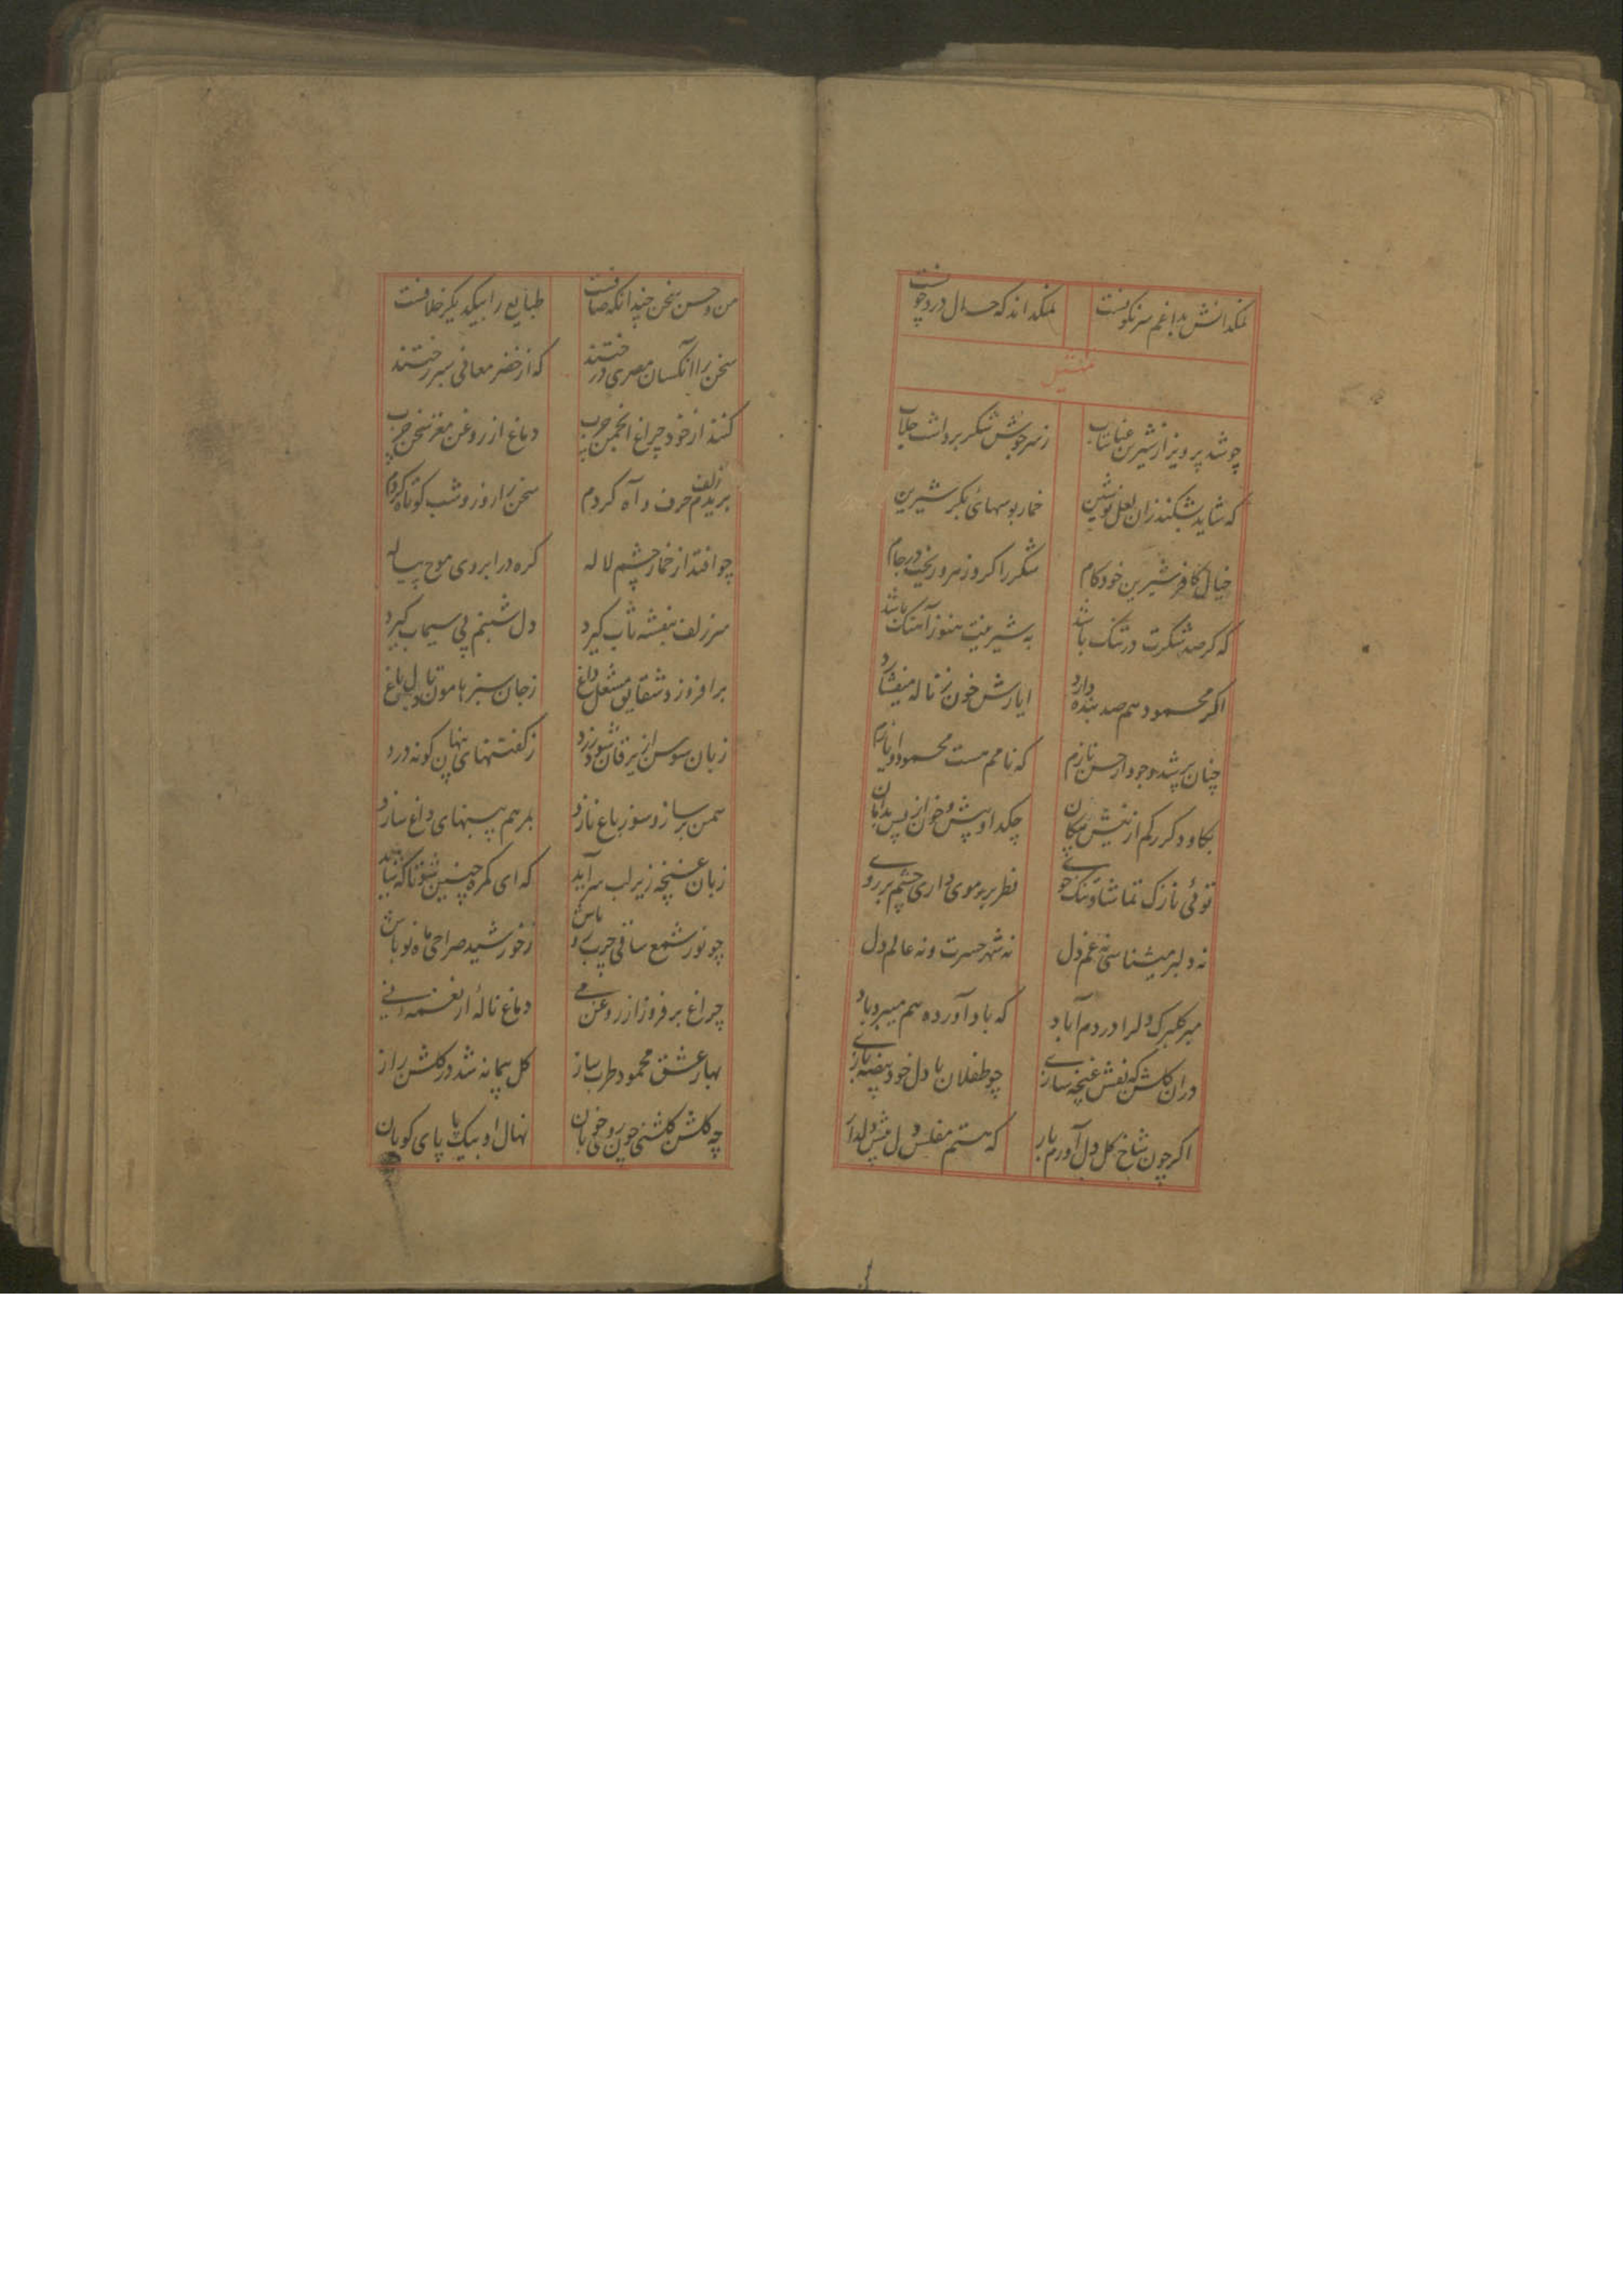 نمکدانش بداغم سرنگونست نمکداند که حال درد چونست
تمثیل
چو شد پرویز از شیرین عتاب ز سرجوش شکر برداشت جلاب
که شاید بشکند زان لعل نوشین خمار بوسهای بکر شیرین
خیال کافر شیرین خودکام شکر را کرد زهر و ریخت در جام
که گر صد شکرت در تنک باشد به شیرینیت هنوز آهنک باشد
اگر محمود هم صد بنده دارد ایازش خون ز ناله میفشارد
چنان پر شد وجود از حسن نازم که نامم هست محمود و ایازم
بکاود گر رکم از نیش پیکان چکد او پیش و خون از پس بدامان
توئی نازک تماشا و تنک خوی نظر بر موی داری چشم بر روی
نه دلبر میشناسی نه غم دل نه شهر حسرت و نه عالم دل
مبر گلبرک دل را در دم آباد که باد آورده هم میبرد باد
دران گلشن که نقش غنچه سازی چو طفلان با دل خود بیضه بازی
اگر چون شاخ گل دل آورم بار که هستم مفلس دل پیش دلدار
من و حسن سخن چندانکه صافست طبایع را بیکدیگر خلافست
سخن را آنکسان مصری درختند که از خضر معانی سبز رختند
کنند از خود چراغ انجمن چرب دماغ از روغن مغز سخن چرب
بریدم زلف حرف و آه کردم سخن را روز و شب کوتاه کردم
چو افتد از خمار چشم لاله کره در ابروی موج پیاله
سر زلف بنفشه تاب گیرد دل شبنم پی سیماب گیرد
برافروزد شقایق مشعل داغ ز جان سبز هامون تا دل باغ
زبان سوسن از یرقان شود زرد ز گفتنهای پنهان گونه درد
سمن بر ساز و سوز باغ نازد بمرهم پنبهای داغ سازد
زبان غنچه زیر لب سراید که ای گمره چنین تقوی نباید
چو نور شمع ساقی چرب رو باش ز خورشید صراحی ماه نو باش
چراغ برفروز از روغن می دماغ ناله از نغمه نی
بهار عشق محمود طرب ساز گل پیمانه شد در گلشن راز
چه گلشن گلشنی چون روی خوبان نهال او بیک پا پای کوبان